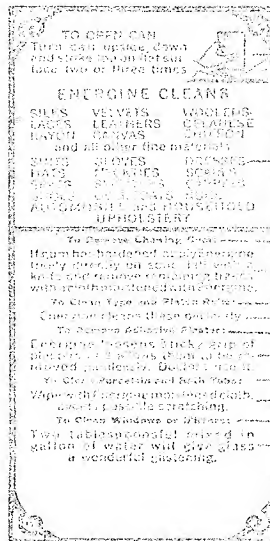 TO OPEN CAN
Turn can upside down
and strike top on flat sur
face two or three times
ENERGINE CLEANS
SILKS VELVETS WOOLENS
LACES LEATHERS CELANESE
RAYON CANVAS CHIFFON
and all other fine materials
SUITS GLOVES DRESSES
HATS NECKTIES SCARFS
SPATS
SHOES RUGS
AUTOMOBILE and HOUSEHOLD
UPHOLSTERY
To Remove Chewing Gum
If gum has hardened apply Energine
freely directly on spot. Lift with a
knife and remove remaining trace
with a cloth moistened with Energine.
To Clean Type and Platen Rolls
Energine cleans these
To Remove Adhesive Plaster
Energine loosens sticky grip of
plaster and allows them to be re-
moved painlessly. Doctors use it.
To Clean Porcelain and Bath Tubs
Wipe with Energine moistened cloth,
avoids possible scratching.
To Clean Windows or Mirrors
Two tablespoonsful mixed in
gallon of water will give glass
a wonderful glistening.